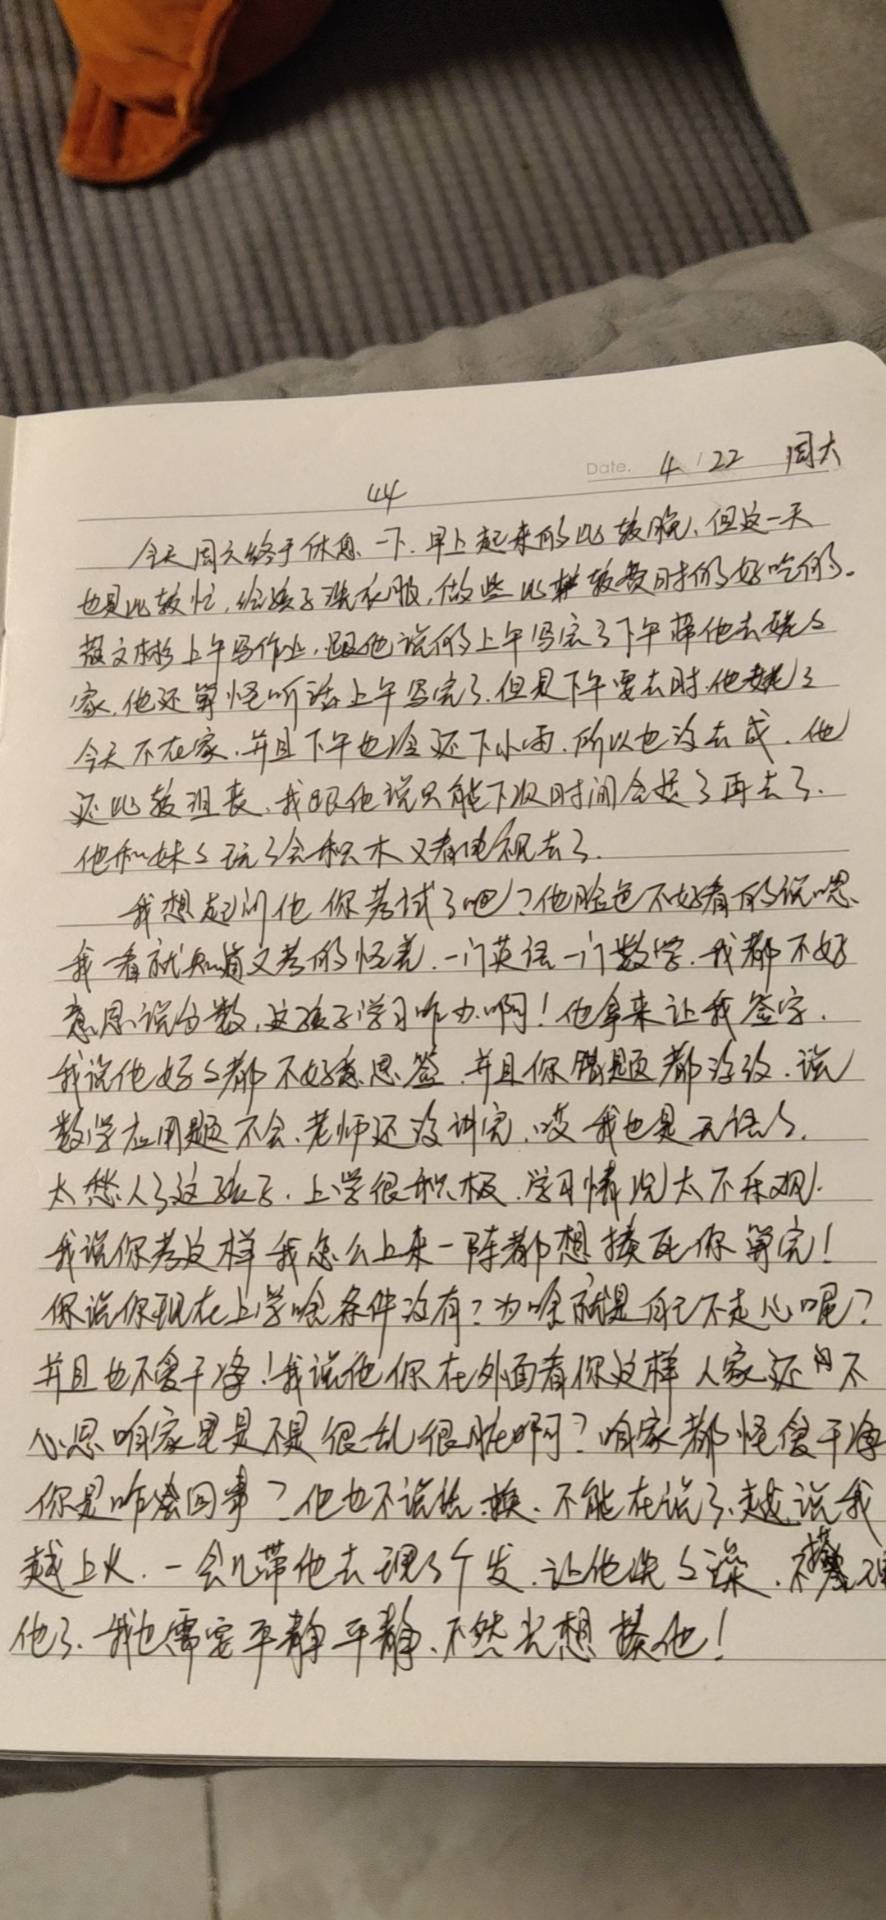 Date. 4/22 周六
44
今天周六终于休息一下.早上起来的比较晚、但这一天
也是比较忙,给孩子洗衣服,做些比较费时的好吃的。
文彬上午写作业,跟他说的上午写完了下午带他去姥々
家.他还算怪听话上午写完了.但是下午要去时.他姥々
今天不在家.并且下午也冷还下小雨.所以也没去成.他
还比较沮丧.我跟他说只能下次时间合适了再去了.
他和妹々玩了会积木又看电视去了.
我想起问他你考试了吧?他脸色不好看的说嗯、
我一看就知道又考的怪差.一门英语一门数学.我都不好
意思说分数、这孩子学习咋办啊!他拿来让我签字.
我说他妈々都不好意思签.并且你错题都没改.说
数学应用题不会、老师还没讲完.哎我也是无语々.
太愁人了这孩子.上学很积极.学习情况太不乐观.
我说你考这样我怎么上来一阵都想揍死你算完!
你说你现在上学啥条件没有?为啥就是自己不走心呢?
并且也不爱干净!我说他你在外面看你这样人家还不
心思咱家里是不是很乱很脏啊?咱家都怪爱干净
你是咋回事?他也不说.不能在说了、越说我
越上火.一会儿带他去理了个发.让他洗々澡.不理
他了、我也需要平静平静、不然光想揍他!